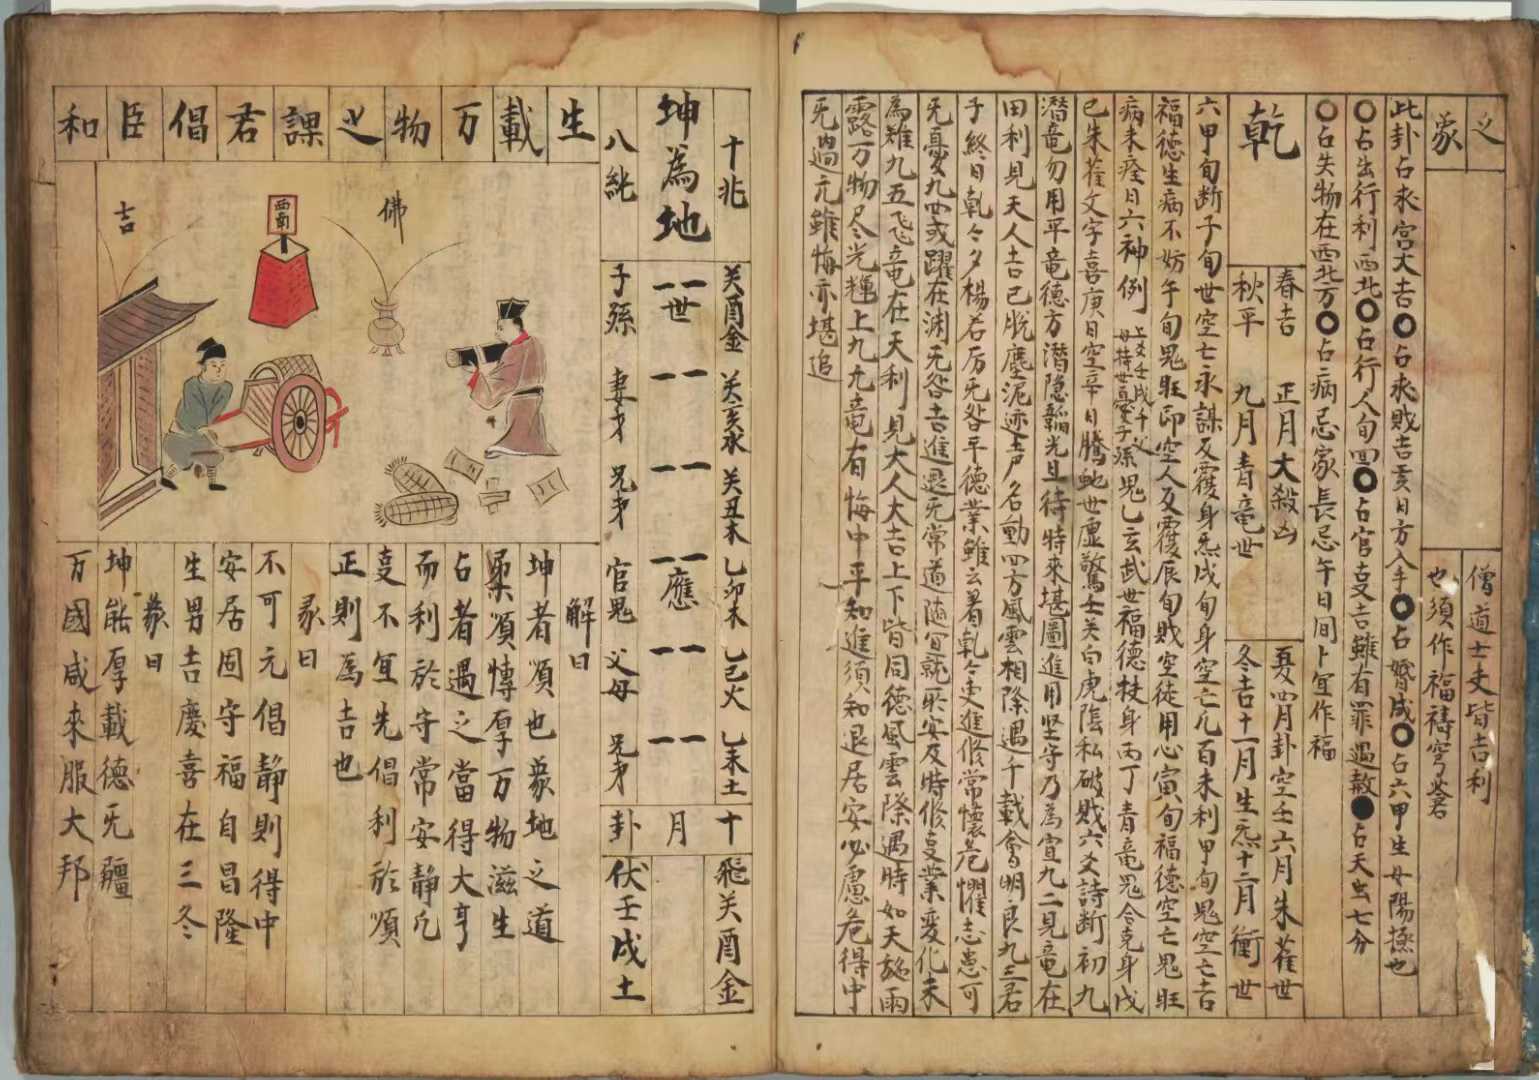 之 僧道士吏皆吉利
彖 也須作福禱穹蒼
此卦占求官大吉〇占求財吉亥日方入手〇占婚成〇占六甲生女陽極也
〇占出行利西北〇占行人旬回〇占官事吉雖有罪遇赦●占天虫七分
〇占失物在西北方〇占病忌家長忌午日間卜宜作福
乾
春吉 正月大殺凶 夏四月卦空壬六月朱雀世
秋平 九月青竜世 冬吉十一月生炁十二月衝世
六甲旬断子旬世空亡永謀反覆身炁戌旬身空亡凡百未利甲旬鬼空亡吉
福德生病不妨午旬鬼旺即空人反覆辰旬財空徒用心寅旬福德空亡鬼旺
病未痊日六神例 上爻壬戌千父母持世憂子孫 鬼乙玄武世福德扶身丙丁青竜鬼合克身戊
已朱雀文字喜庚日空辛日騰虵世虚驚壬关白虎陰私破財六爻詩断初九
潜竜勿用平竜德方潜隐韜光且待時來堪圖進用坚守乃為宜九二見竜在
田利見天人吉已脱塵泥迹声名動四方風雲相際遇千載會明良九三君
子終日乹々夕楊若厉旡咎平德業雖云著乹々更進修常懷危惧志患可
旡憂九四或躍在渊旡咎吉進退旡常道随宜就所安及時修叓業変化未
為难九五飞竜在天利見大人大吉上下皆同德風雲際遇時如天施雨
露万物尽光輝上九亢竜有悔中平知進須知退居安必慮危得中
旡過亢雖悔亦堪追
十兆 关酉金 关亥水 关丑木 乙卯木 乙巳火 乙未土 十 飛关酉金
坤為地 世 應 月
八純 子孫 妻才 兄弟 官鬼 父母 兄弟 卦 伏壬戌土
生載万物之課君倡臣和
佛
西南
吉
解曰
坤者順也象地之道
柔順博厚万物滋生
占者遇之當得大亨
而利於守常安靜凡
叓不宜先倡利於順
正則為吉也
彖曰
不可元倡靜則得中
安居固守福自昌隆
生男吉慶喜在三冬
象曰
坤能厚載德旡疆
万國咸來服大邦